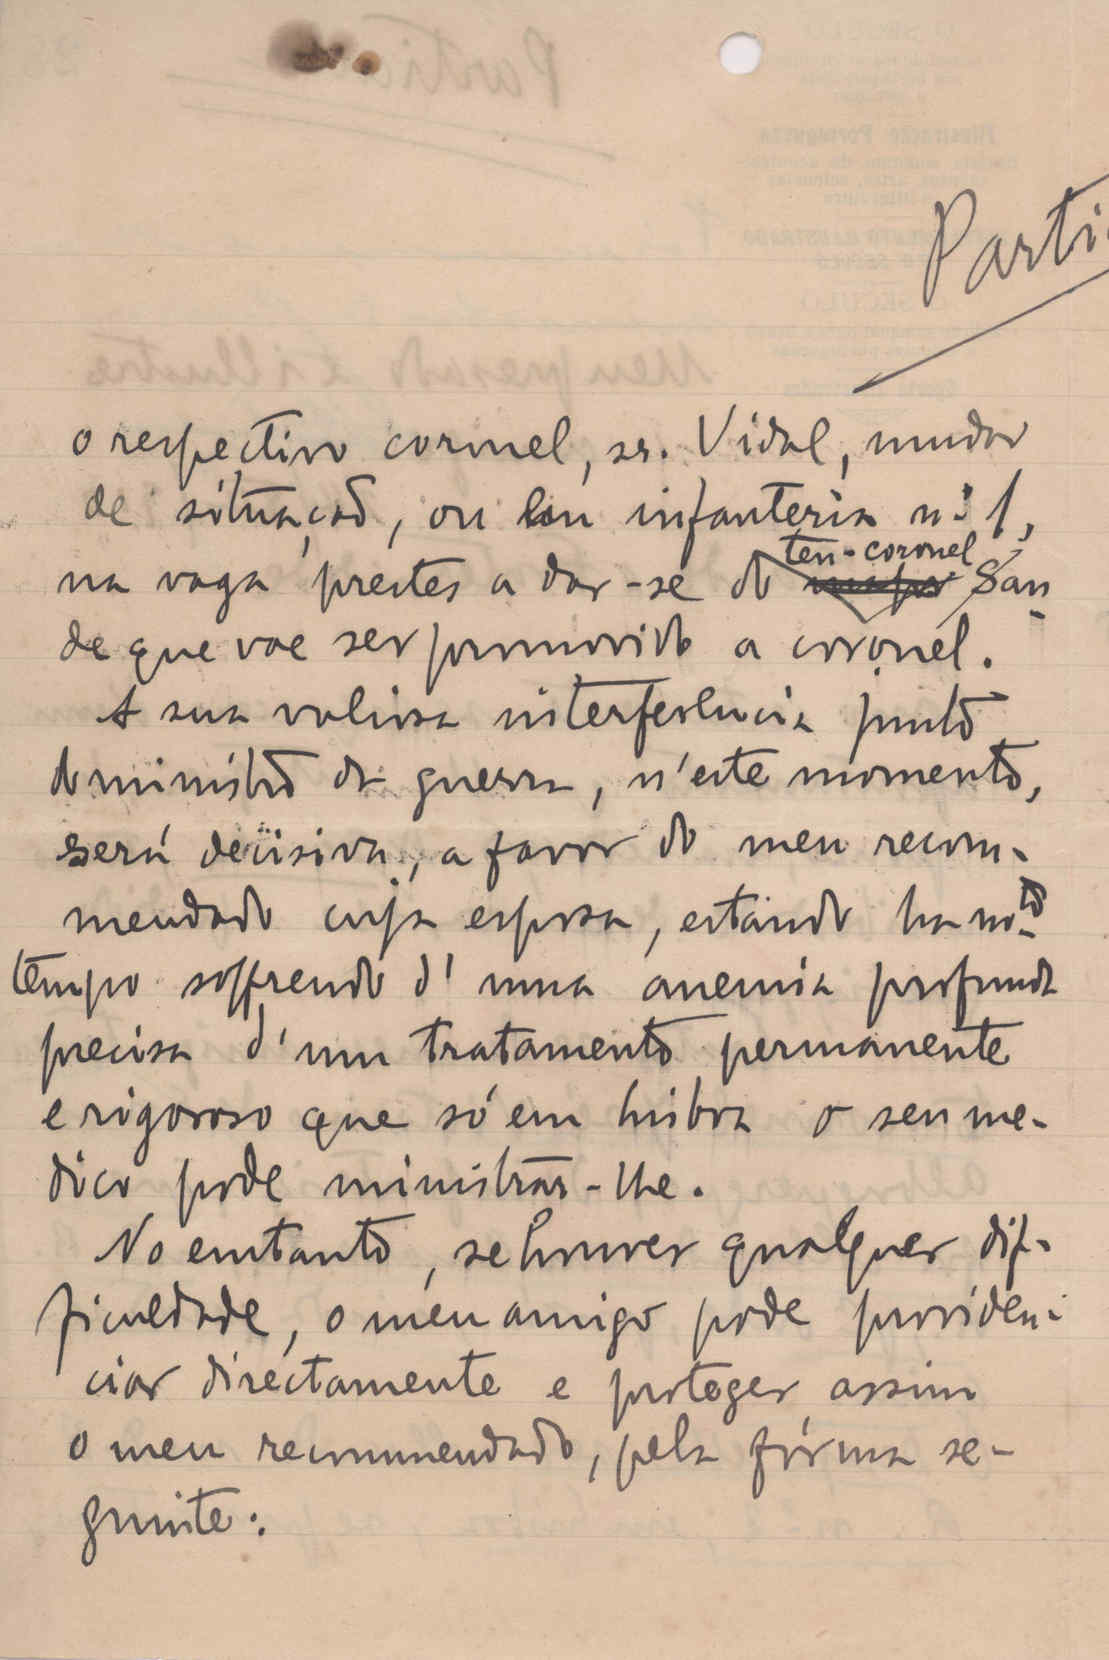 Parti
o respectivo coronel, sr. Vidal, mudar
de situação, ou em infanteria nº 1,
na vaga prestes a dar-se do ten-coronel San
de que vae ser promovido a coronel.
A sua valiosa interferencia junto
do ministro da guerra, n'este momento,
será decisiva, a favor do meu recom-
mendado cuja esposa, estando ha mto
tempo soffrendo d'uma anemia profunda
precisa d'um tratamento permanente
e rigoroso que só em Lisboa o seu me-
dico pode ministrar-lhe.
No emtanto, se houver qualquer dif-
ficuldade, o meu amigo pode providen-
ciar directamente e proteger assim
o meu recommendado, pela fórma se-
guinte: